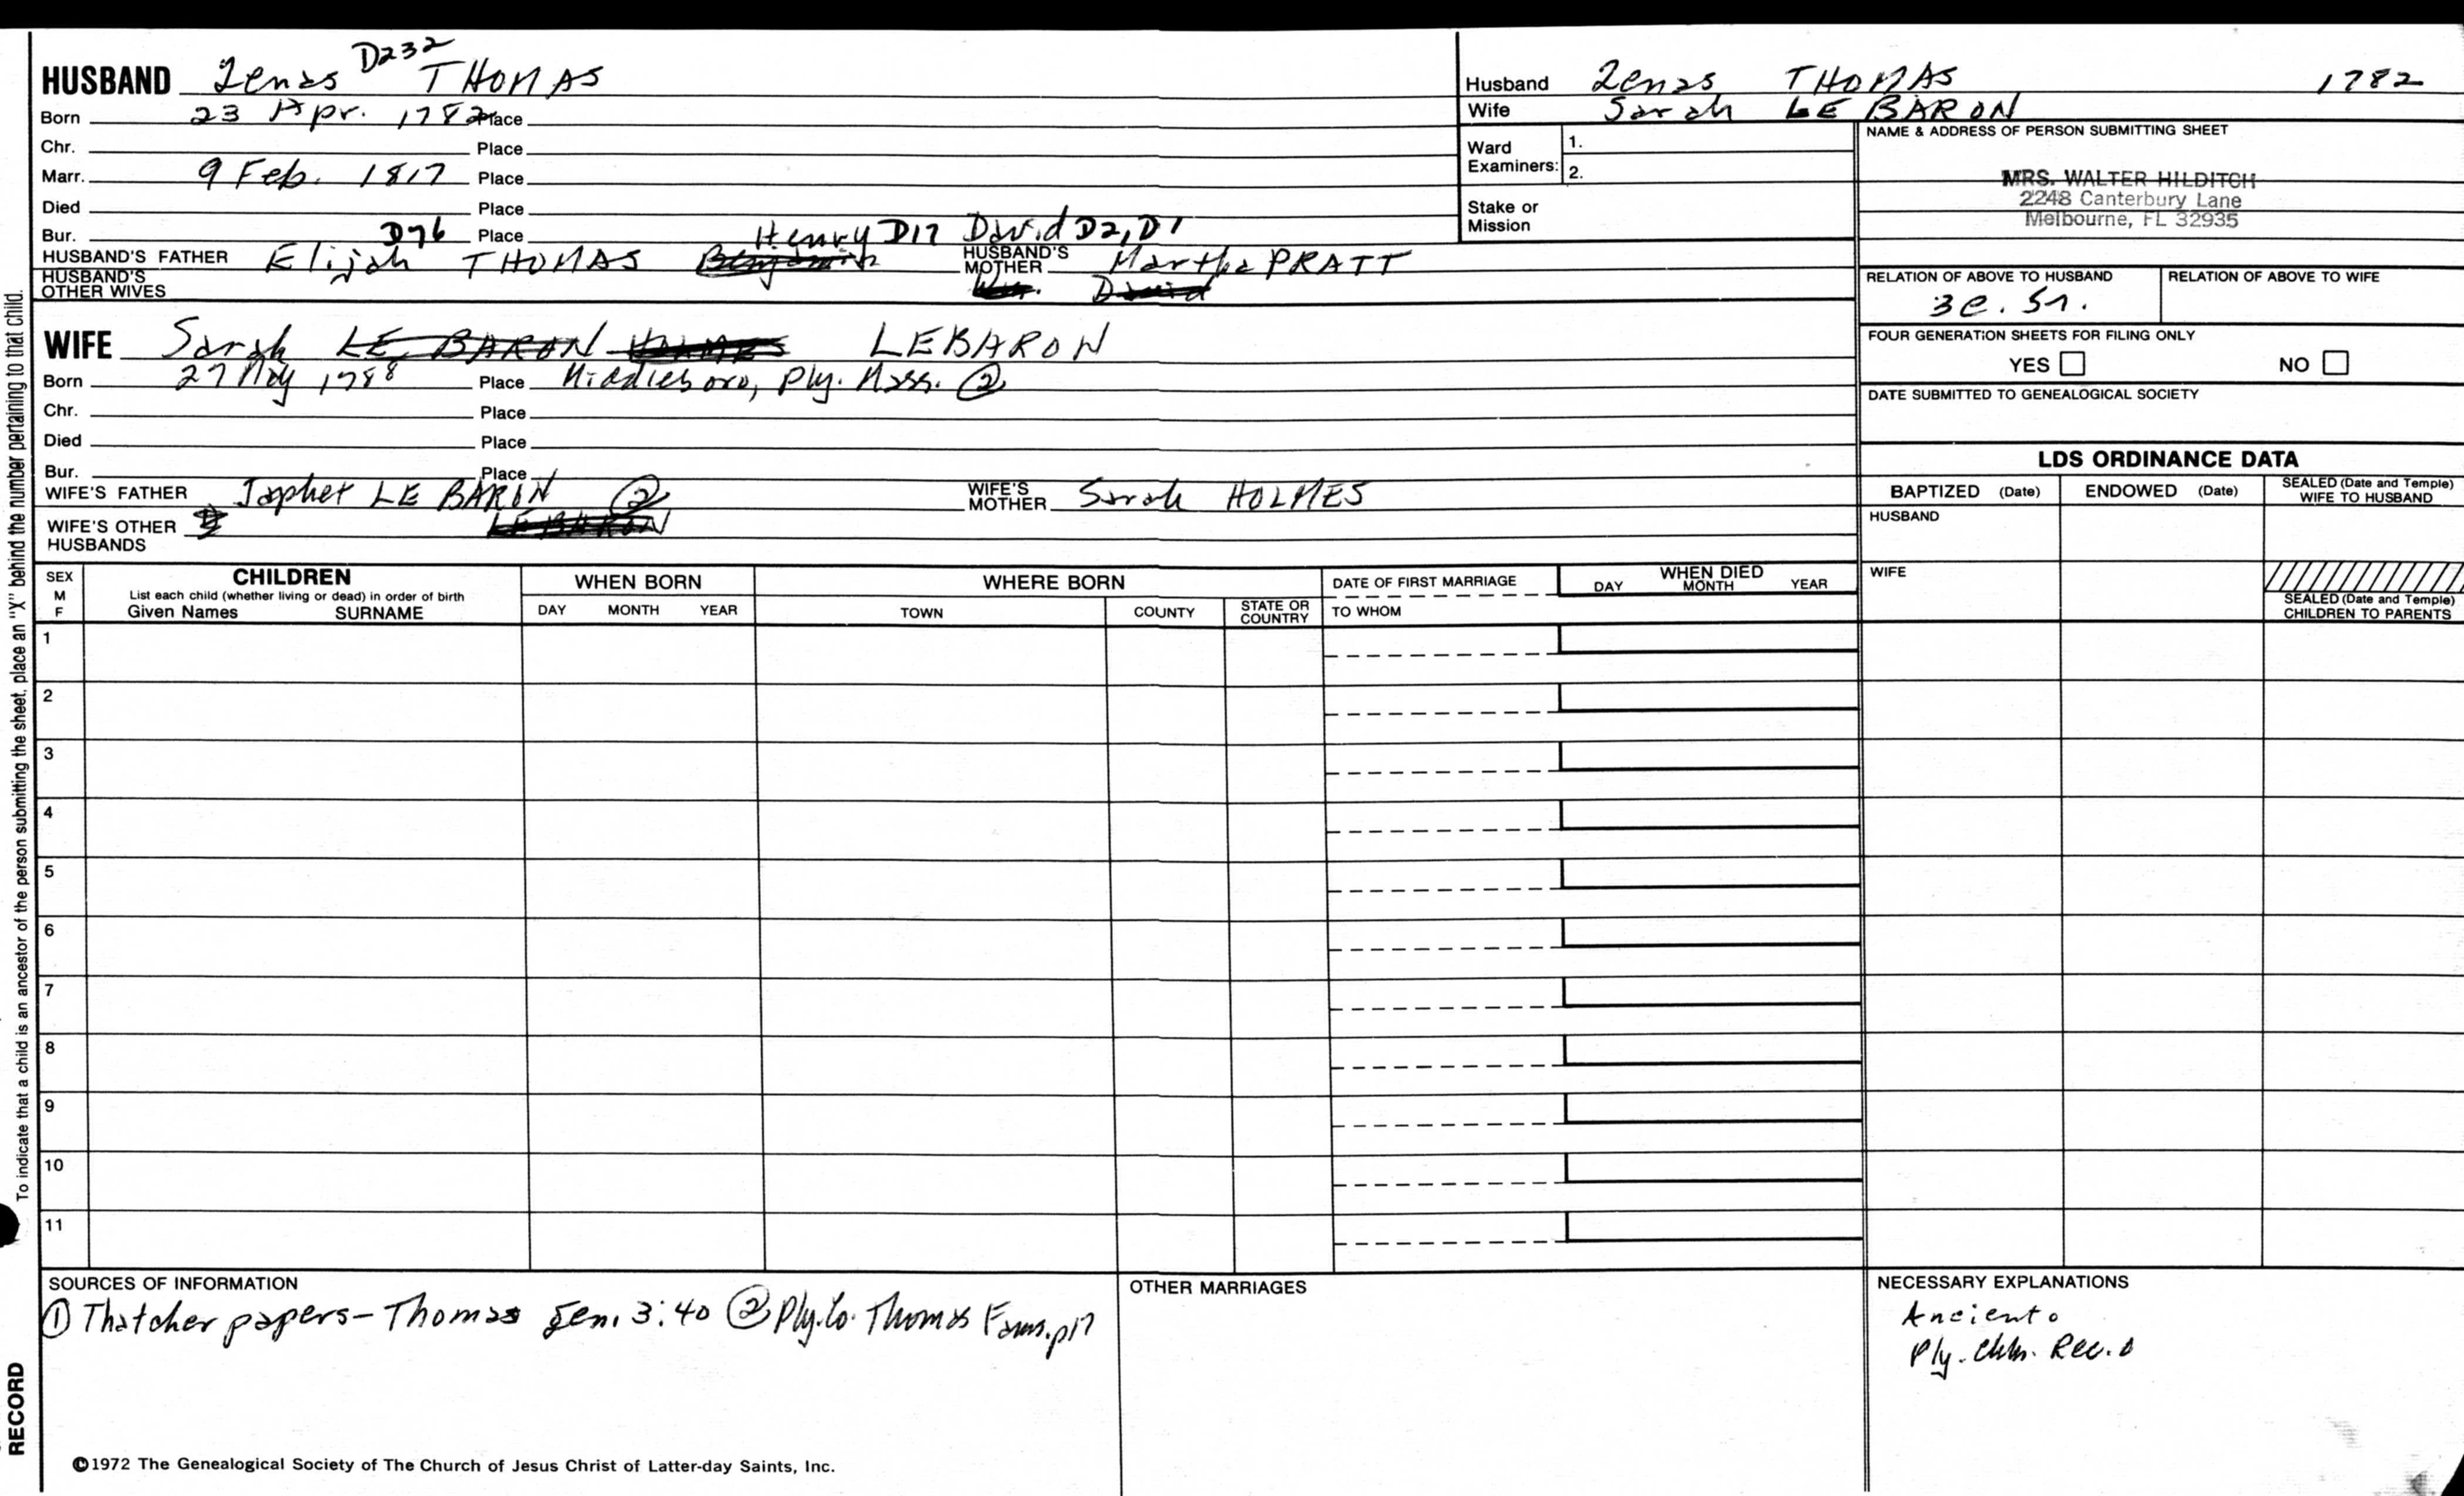 D232
HUSBAND Zenas THOMAS
Born 23 Apr. 1782 Place
Chr. Place
Marr. 9 Feb. 1817 Place
Died Place
Bur. D76 Place Henry D17 David D2, D1
HUSBAND'S FATHER Elijah THOMAS Benjamin HUSBAND'S MOTHER Martha PRATT
HUSBAND'S OTHER WIVES Wm. David
WIFE Sarah LE BARON HOLMES LEBARON
Born 27 May 1788 Place Middleboro, Ply. Mass. ②
Chr. Place
Died Place
Bur. Place
WIFE'S FATHER Japhet LE BARON ② WIFE'S MOTHER Sarah HOLMES
WIFE'S OTHER HUSBANDS LE BARON
Husband Zenas THOMAS 1782
Wife Sarah LE BARON
Ward Examiners: 1.
2.
Stake or Mission
NAME & ADDRESS OF PERSON SUBMITTING SHEET
MRS. WALTER HILDITCH
2248 Canterbury Lane
Melbourne, FL 32935
RELATION OF ABOVE TO HUSBAND RELATION OF ABOVE TO WIFE
3c. 5r.
FOUR GENERATION SHEETS FOR FILING ONLY
YES NO
DATE SUBMITTED TO GENEALOGICAL SOCIETY
LDS ORDINANCE DATA
BAPTIZED (Date) ENDOWED (Date) SEALED (Date and Temple) WIFE TO HUSBAND
HUSBAND
WIFE
SEALED (Date and Temple) CHILDREN TO PARENTS
SEX M F
CHILDREN
List each child (whether living or dead) in order of birth
Given Names SURNAME
WHEN BORN
DAY MONTH YEAR
WHERE BORN
TOWN COUNTY STATE OR COUNTRY
DATE OF FIRST MARRIAGE
TO WHOM
WHEN DIED
DAY MONTH YEAR
1
2
3
4
5
6
7
8
9
10
11
SOURCES OF INFORMATION
① Thatcher papers – Thomas gen. 3:40 ② Ply. Co. Thomas Fams. p17
OTHER MARRIAGES
NECESSARY EXPLANATIONS
Ancient
Ply. Chh. Rec.
©1972 The Genealogical Society of The Church of Jesus Christ of Latter-day Saints, Inc.
To indicate that a child is an ancestor of the person submitting the sheet, place an "X" behind the number pertaining to that child.
RECORD